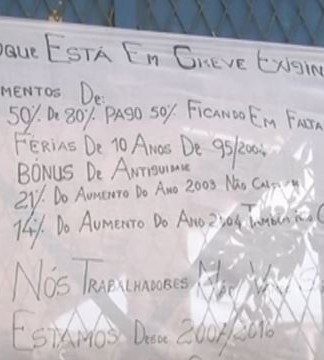 QUE ESTÁ EM GREVE EXIGIN
MENTOS DE:
50% DE 80% PAGO 50% FICANDO EM FALTA
FERIAS DE 10 ANOS DE 95/2004
BÓNUS DE
21% DO AUMENTO DO ANO 2003 NÃO
14% DO AUMENTO DO ANO 2004
NÓS TRABALHADORES
ESTAMOS DESDE